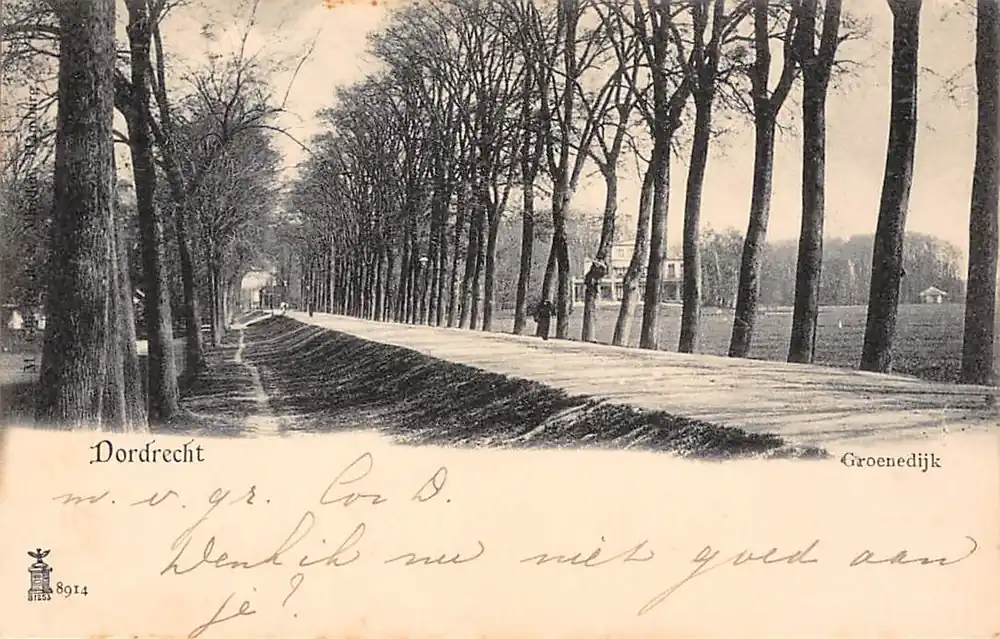 Dordrecht
Groenedijk
m. v. gr. Cor D.
Denk ik nu niet goed aan
je?
B1253
8914